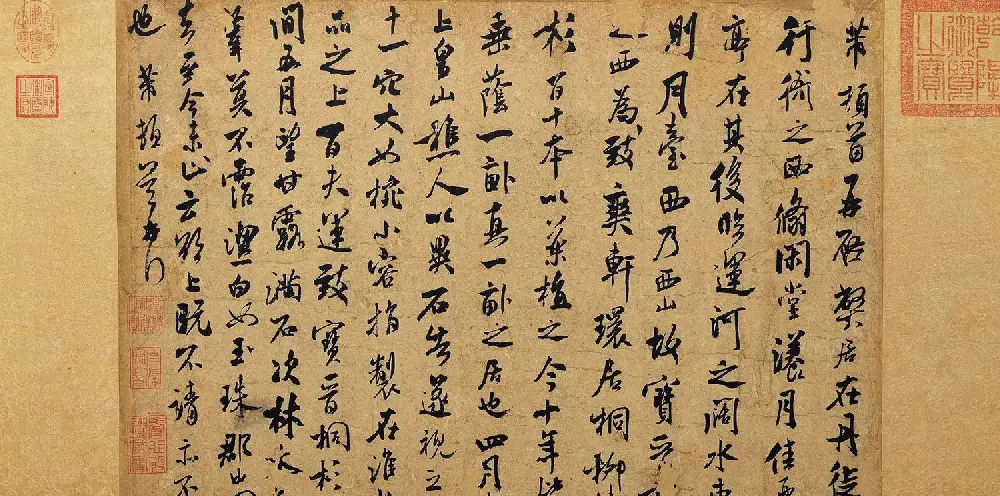 芾頓首再啓弊居在丹徒
行衙之西翛閑堂漾月佳
亭在其後臨運河之闊水
則月臺西乃西山故寶晉
之西為致爽軒環居桐柳
杉百十本以藥植之今十年
垂蔭一畝真一畝之居也四月
上皇山樵人以異石告遂視之
十一穴大如椀小容指製在淮
品之上百夫運致寶晉桐杉
間五月望甘露滿石次林木
葦莫不霑潔白如玉珠郡中
去至今未止云欲上既不請亦不
也芾頓首再拜